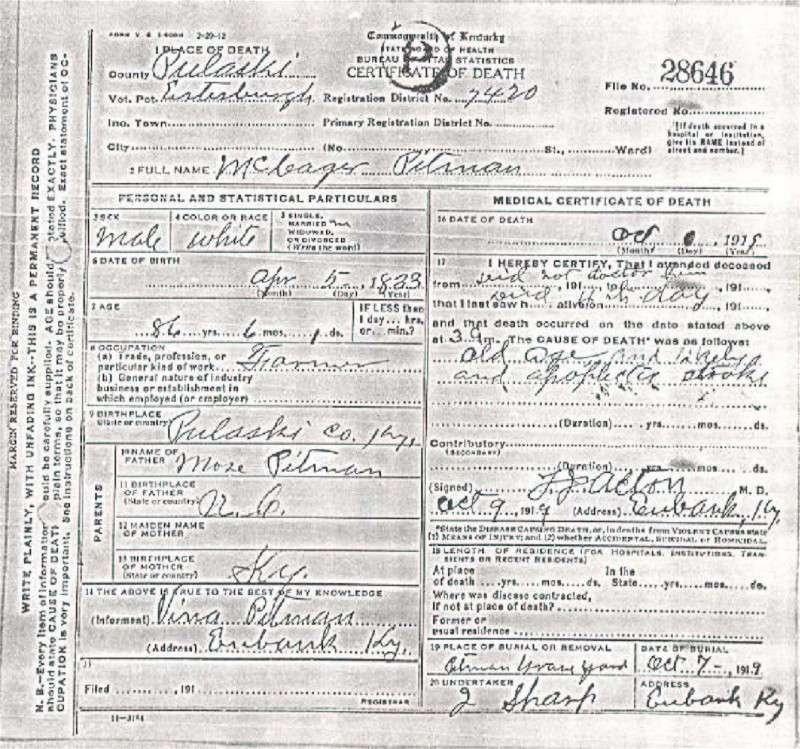 FORM V. S. 2-29-12
Commonwealth of Kentucky
STATE BOARD OF HEALTH
BUREAU OF VITAL STATISTICS
CERTIFICATE OF DEATH
1 PLACE OF DEATH
County Pulaski
Vot. Pct. Estesburgh Registration District No. 7420
File No. 28646
Inc. Town Primary Registration District No.
Registered No.
City (No. St., Ward)
[If death occurred in a
hospital or institution,
give its NAME instead of
street and number.]
2 FULL NAME McCager Pitman
PERSONAL AND STATISTICAL PARTICULARS
3 SEX
male
4 COLOR OR RACE
white
5 SINGLE,
MARRIED
WIDOWED,
OR DIVORCED
(Write the word)
6 DATE OF BIRTH
Apr 5, 1833
(Month) (Day) (Year)
7 AGE
86 yrs. 6 mos. 1 ds.
IF LESS than
1 day... hrs.
or... min.?
8 OCCUPATION
(a) Trade, profession, or
particular kind of work Farmer
(b) General nature of industry
business or establishment in
which employed (or employer)
9 BIRTHPLACE
(State or country) Pulaski Co. Ky.
PARENTS
10 NAME OF
FATHER Mose Pitman
11 BIRTHPLACE
OF FATHER
(State or country) N.C.
12 MAIDEN NAME
OF MOTHER
13 BIRTHPLACE
OF MOTHER
(State or country) Ky.
14 THE ABOVE IS TRUE TO THE BEST OF MY KNOWLEDGE
(Informant) Vina Pitman
(Address) Eubank Ky.
15
Filed, 191
REGISTRAR
11-3184
MEDICAL CERTIFICATE OF DEATH
16 DATE OF DEATH
Oct 6, 191
(Month) (Day) (Year)
17 I HEREBY CERTIFY, That I attended deceased
from did not doctor him, 191, to, 191,
that I last saw h alive on, 191,
and that death occurred on the date stated above
at 3 m. The CAUSE OF DEATH* was as follows:
old age and
and stroke
(Duration) yrs. mos. ds.
Contributory
(SECONDARY)
(Duration) yrs. mos. ds.
(Signed) Acton M. D.
Oct 9, 1919 (Address) Eubank, Ky.
*State the DISEASE CAUSING DEATH, or, in deaths from VIOLENT CAUSES state
(1) MEANS OF INJURY; and (2) whether ACCIDENTAL, SUICIDAL or HOMICIDAL.
18 LENGTH OF RESIDENCE (FOR HOSPITALS, INSTITUTIONS, TRAN-
SIENTS OR RECENT RESIDENTS)
At place In the
of death yrs. mos. ds. State yrs. mos. ds.
Where was disease contracted,
If not at place of death?
Former or
usual residence
19 PLACE OF BURIAL OR REMOVAL
Pitman Grave Yard
DATE OF BURIAL
Oct 7- 1919
20 UNDERTAKER
J Sharp
ADDRESS
Eubank Ky
MARGIN RESERVED FOR BINDING
WRITE PLAINLY, WITH UNFADING INK—THIS IS A PERMANENT RECORD
N. B.—Every item of information should be carefully supplied. AGE should be stated EXACTLY. PHYSICIANS
should state CAUSE OF DEATH in plain terms, so that it may be properly classified. Exact statement of OC-
CUPATION is very important. See instructions on back of certificate.